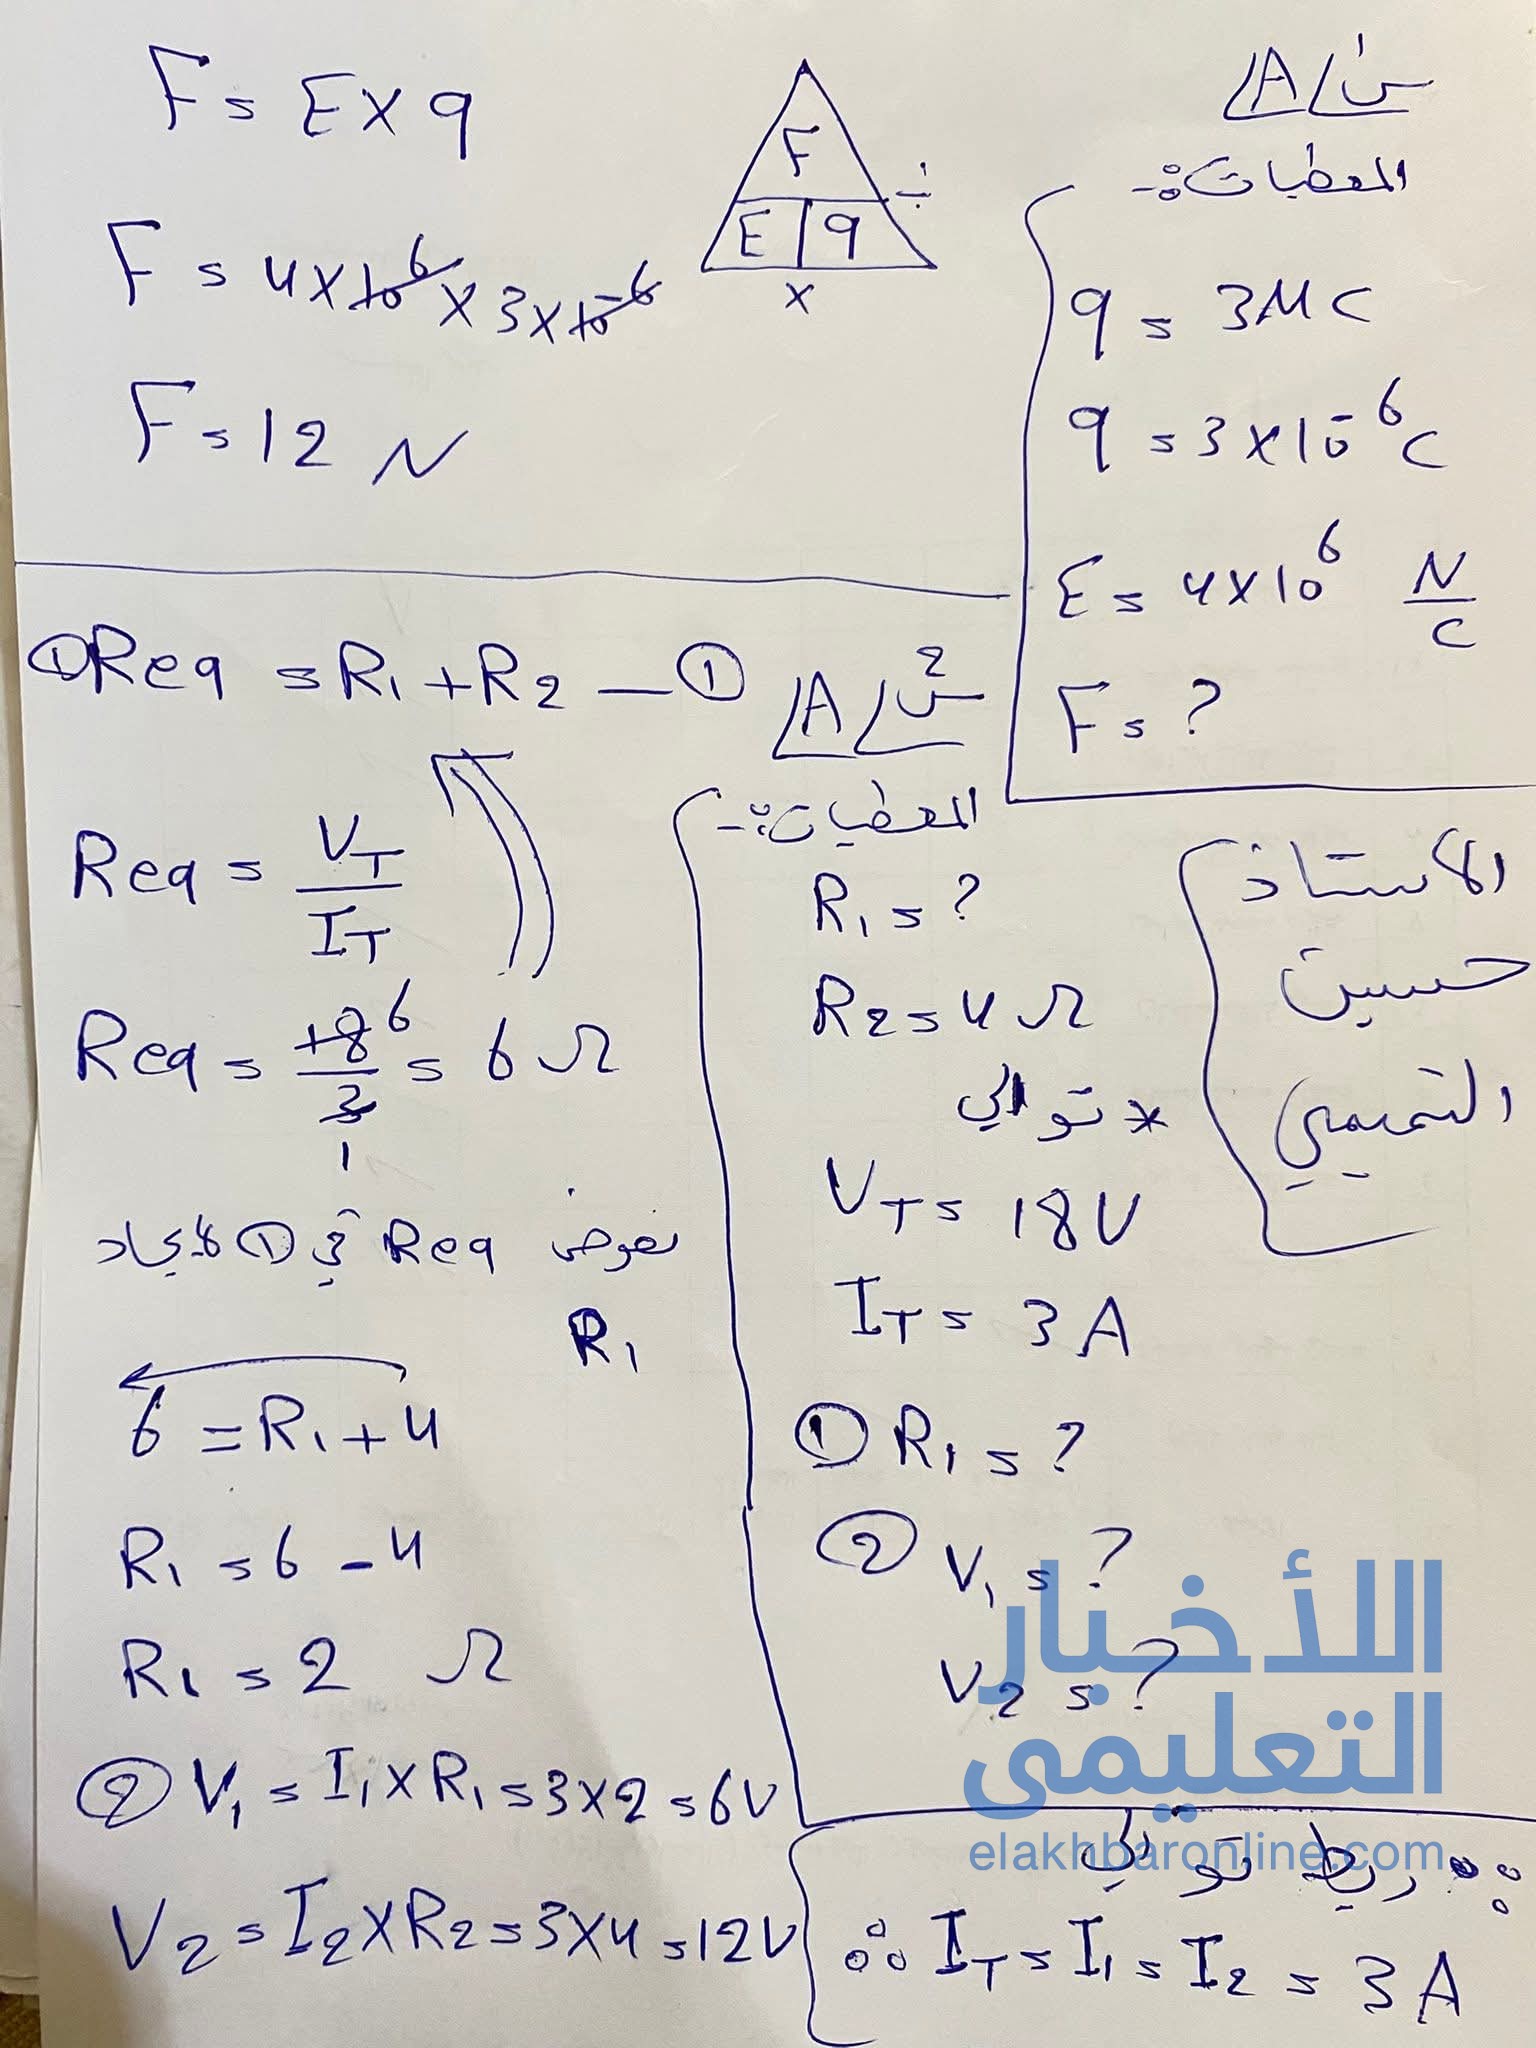 س١/A/
المعطيات:-
q = 3MC
q = 3×10⁻⁶ C
E = 4×10⁶ N/C
F = ?
F = E×q
F
E q
÷
×
F = 4×10⁶ × 3×10⁻⁶
F = 12 N
س٢/A/
المعطيات:-
R₁ = ?
R₂ = 4 Ω
* توالي
V_T = 18V
I_T = 3 A
① R₁ = ?
② V₁ = ?
V₂ = ?
الأستاذ
حسين
التميمي
① Req = R₁ + R₂ — ①
Req = V_T/I_T
Req = 18/3 = 6 Ω
6
1
نعوض Req في ① لايجاد
R₁
6 = R₁ + 4
R₁ = 6 - 4
R₁ = 2 Ω
② V₁ = I₁×R₁ = 3×2 = 6V
V₂ = I₂×R₂ = 3×4 = 12V
∵ ربط توالي
∴ I_T = I₁ = I₂ = 3 A
الأخبار
التعليمى
elakhbaronline.com